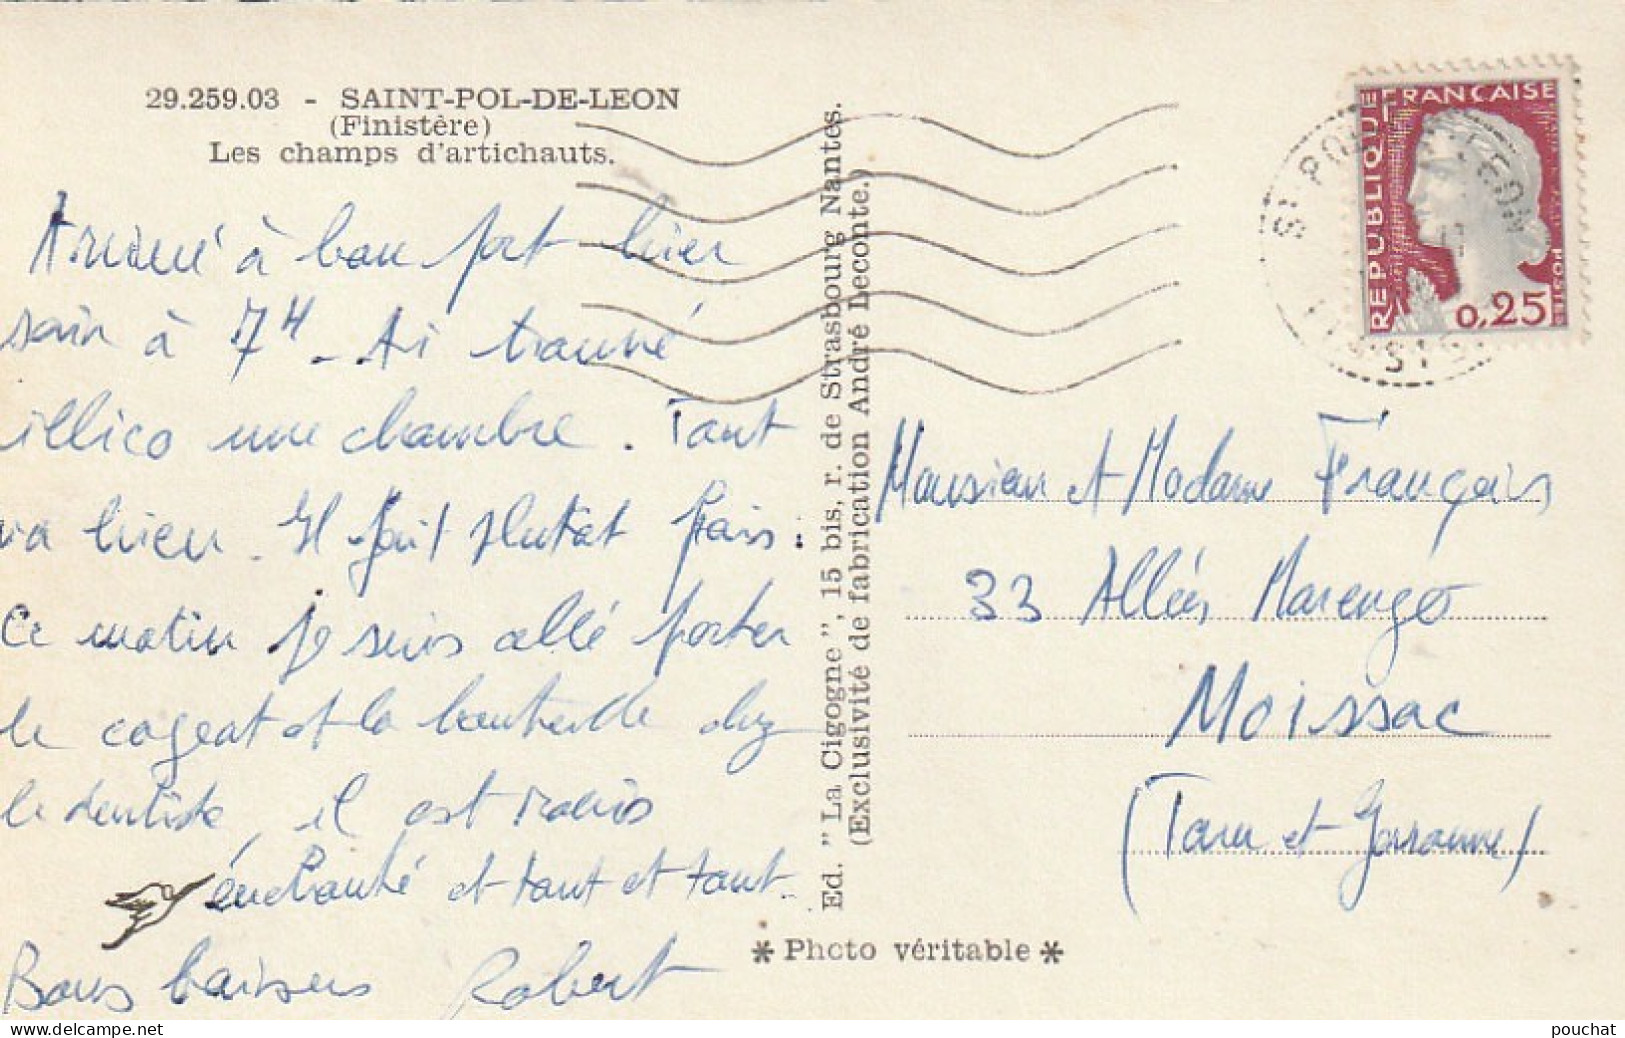 29.259.03 - SAINT-POL-DE-LEON
(Finistère)
Les champs d'artichauts.
Arrivé à bon port hier
soir à 7H - Ai trouvé
illico une chambre. Tout
va bien. Il fait plutôt frais :
Ce matin je suis allé porter
le cageot et la bouteille chez
le dentiste, il est ravis
enchanté et tout et tout.
Bons baisers Robert
Ed. "La Cigogne", 15 bis, r. de Strasbourg Nantes.
(Exclusivité de fabrication André Leconte.)
* Photo véritable *
RÉPUBLIQUE FRANÇAISE
0,25
ST POL DE LEON
FINISTERE
Monsieur et Madame Français
33 Allées Marengo
Moissac
(Tarn et Garonne)
www.delcampe.net
pouchat